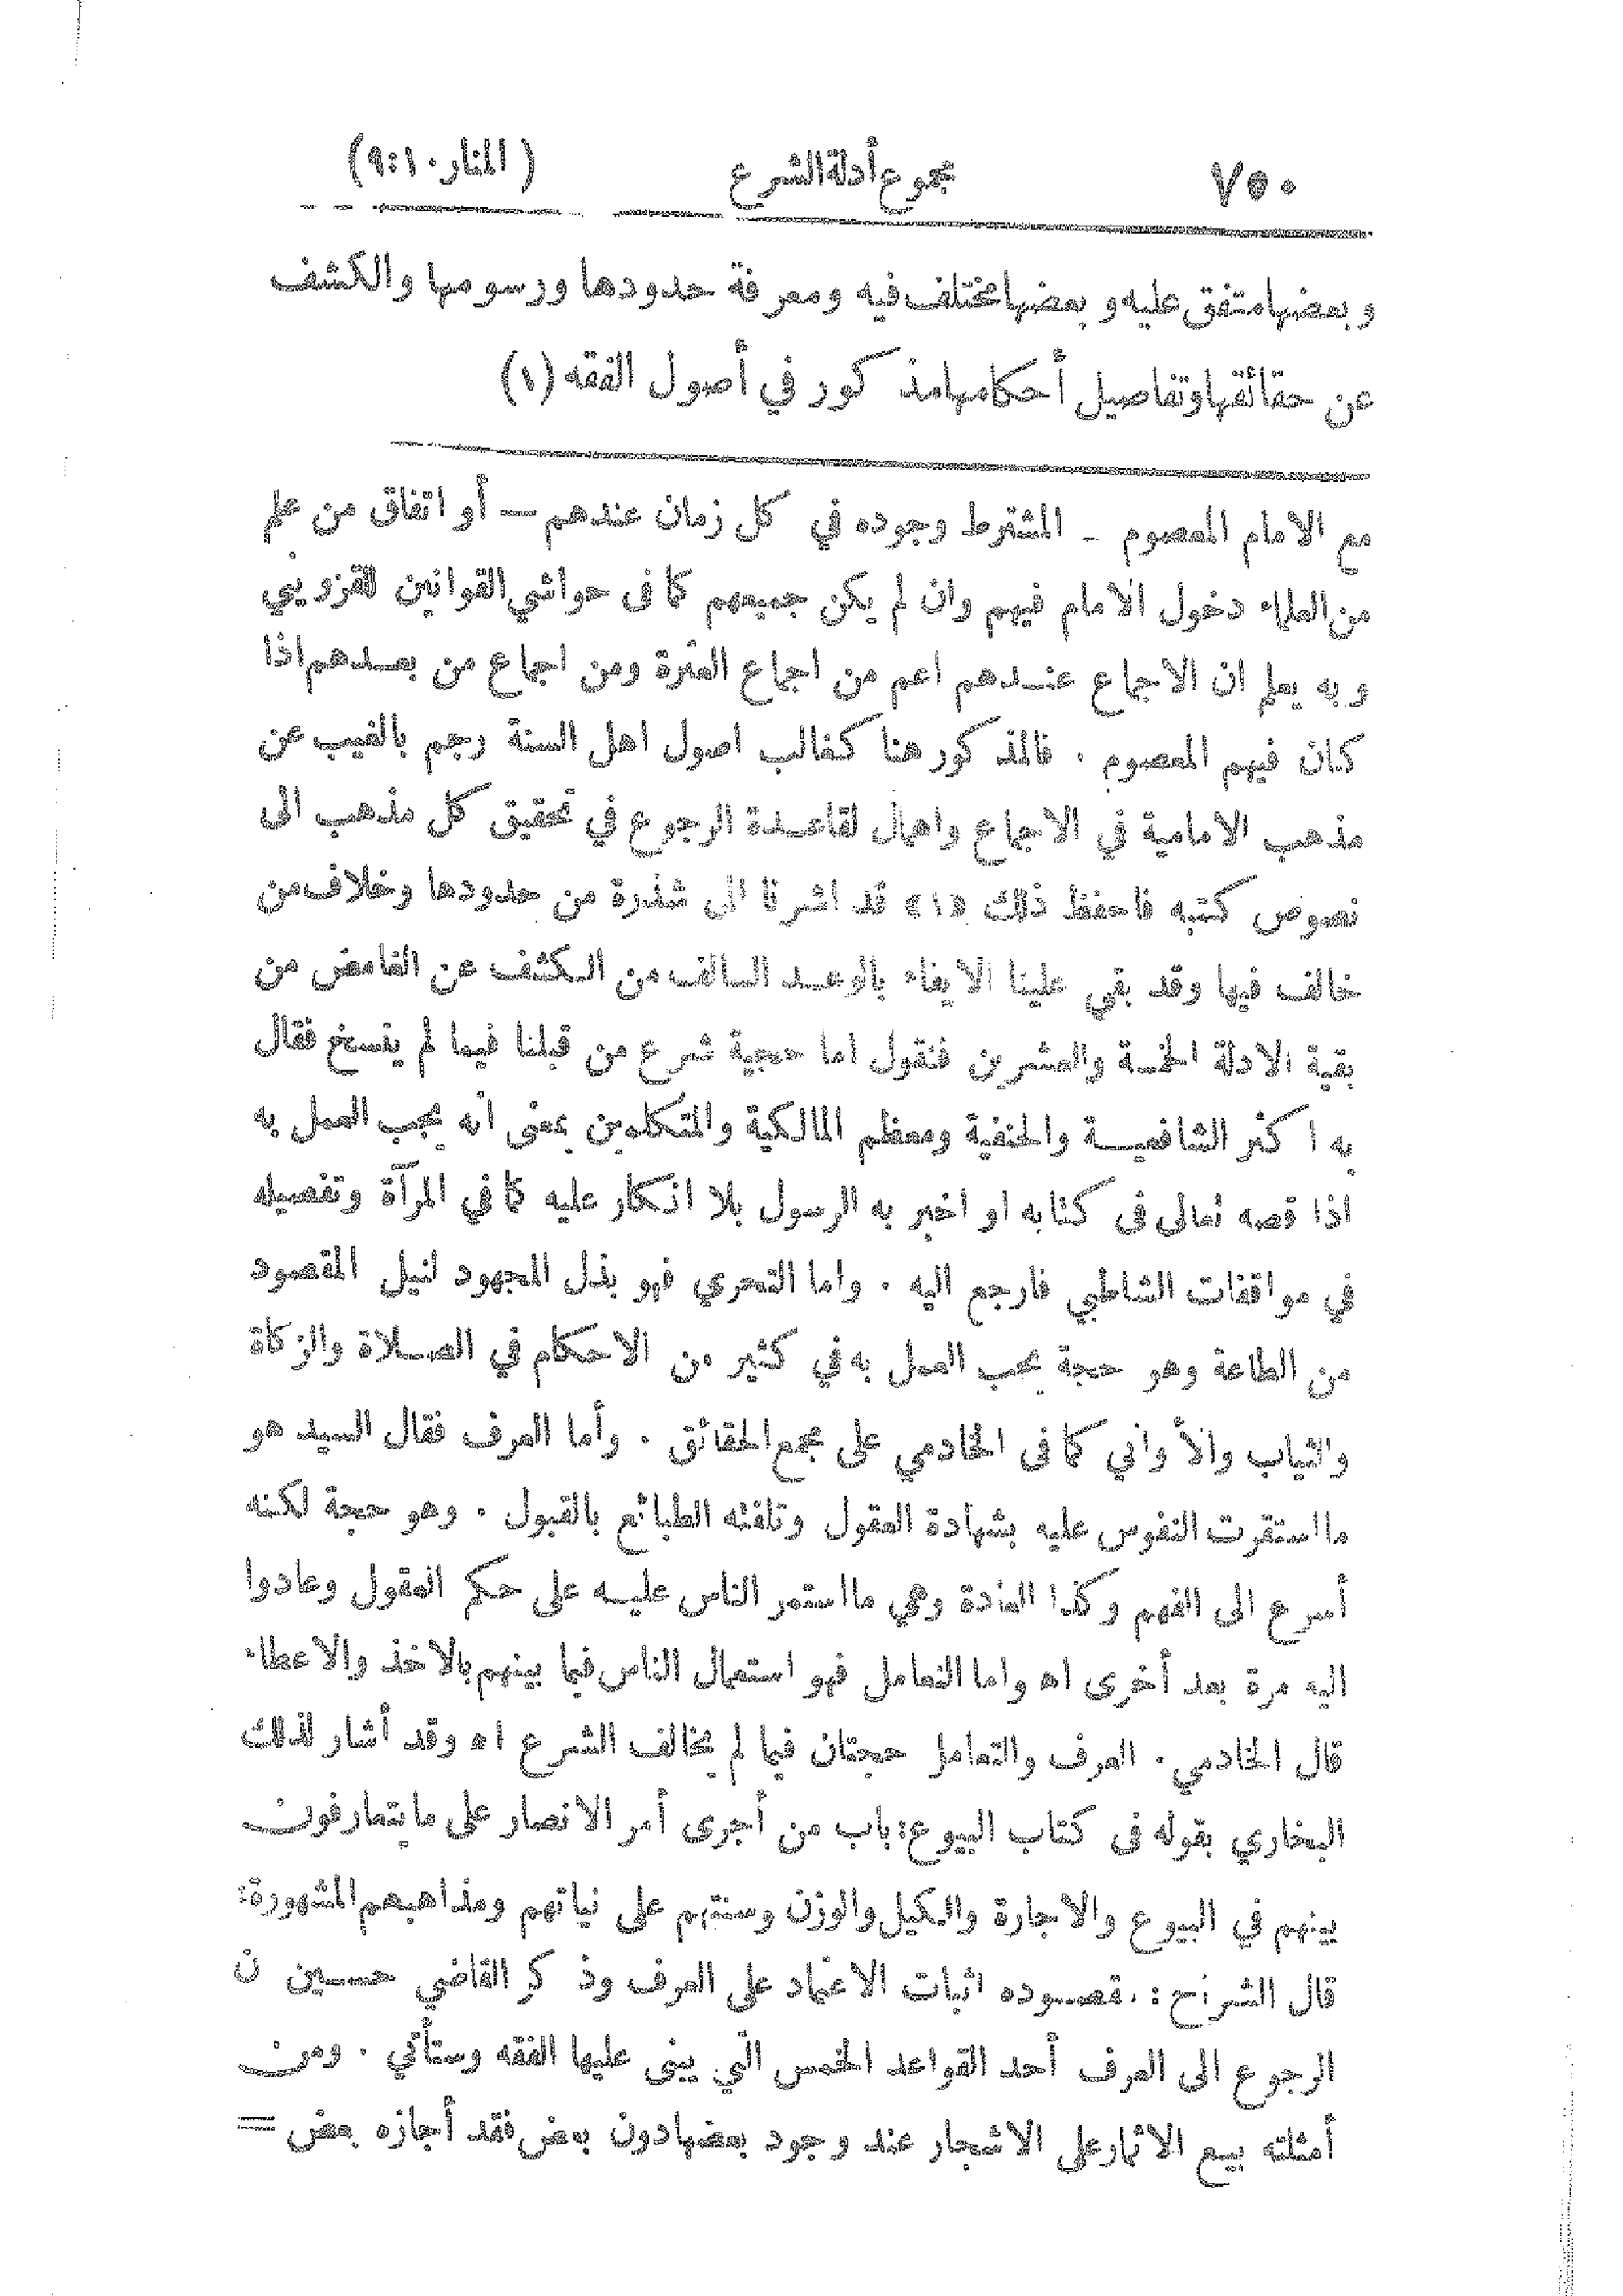 ٧٥٠ مجموع أدلة الشرع (المنار ١٠:٩)
وبعضها متفق عليه وبعضها مختلف فيه ومعرفة حدودها ورسومها والكشف
عن حقائقها وتفاصيل أحكامها مذكور في أصول الفقه (١)
مع الامام المعصوم ـ المشترط وجوده في كل زمان عندهم — أو اتفاق من علم
من العلماء دخول الامام فيهم وان لم يكن جميعهم كما فى حواشي القوانين للقزويني
وبه يعلم ان الاجماع عندهم اعم من اجماع العترة ومن اجماع من بعدهم اذا
كان فيهم المعصوم . فالمذكور هنا كغالب اصول اهل السنة رجم بالغيب عن
مذهب الامامية في الاجماع واهمال لقاعدة الرجوع في تحقيق كل مذهب الى
نصوص كتبه فاحفظ ذلك «١» قد اشرنا الى شذرة من حدودها وخلاف من
خالف فيها وقد بقي علينا الايفاء بالوعد السالف من الكشف عن الغامض من
بقية الادلة الخمسة والعشرين فنقول اما حجية شرع من قبلنا فيما لم ينسخ فقال
به اكثر الشافعية والحنفية ومعظم المالكية والمتكلمين بمعنى انه يجب العمل به
اذا قصه تعالى فى كتابه او اخبر به الرسول بلا انكار عليه كما في المرآة وتفصيله
في موافقات الشاطبي فارجع اليه . واما التحري فهو بذل المجهود لنيل المقصود
من الطاعة وهو حجة يجب العمل به في كثير من الاحكام في الصلاة والزكاة
والثياب والأواني كما فى الخادمي على مجمع الحقائق . وأما العرف فقال السيد هو
ما استقرت النفوس عليه بشهادة العقول وتلقته الطبائع بالقبول . وهو حجة لكنه
أسرع الى الفهم وكذا العادة وهي ما استمر الناس عليه على حكم العقول وعادوا
اليه مرة بعد أخرى اه واما التعامل فهو استعمال الناس فيما بينهم بالاخذ والاعطاء
قال الخادمي . العرف والتعامل حجتان فيما لم يخالف الشرع اه وقد أشار لذلك
البخاري بقوله فى كتاب البيوع: باب من أجرى أمر الانصار على ما يتعارفون
بينهم في البيوع والاجارة والمكيل والوزن وسنتهم على نياتهم ومذاهبهم المشهورة:
قال الشراح: مقصوده اثبات الاعتماد على العرف وذكر القاضي حسين ن
الرجوع الى العرف أحد القواعد الخمس التي يبنى عليها الفقه وستأتي . ومن
أمثلته بيع الاثمار على الاشجار عند وجود بعضها دون بعض فقد أجازه بعض =